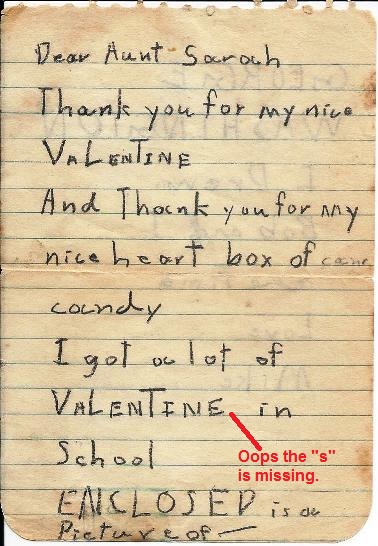 Dear Aunt Sarah
Thank you for my nice
VaLENTINE
And Thank you for my
nice heart box of
candy
I got a lot of
VALENTINE in
School
Oops the "s"
is missing.
ENCLOSED is a
Picture of —